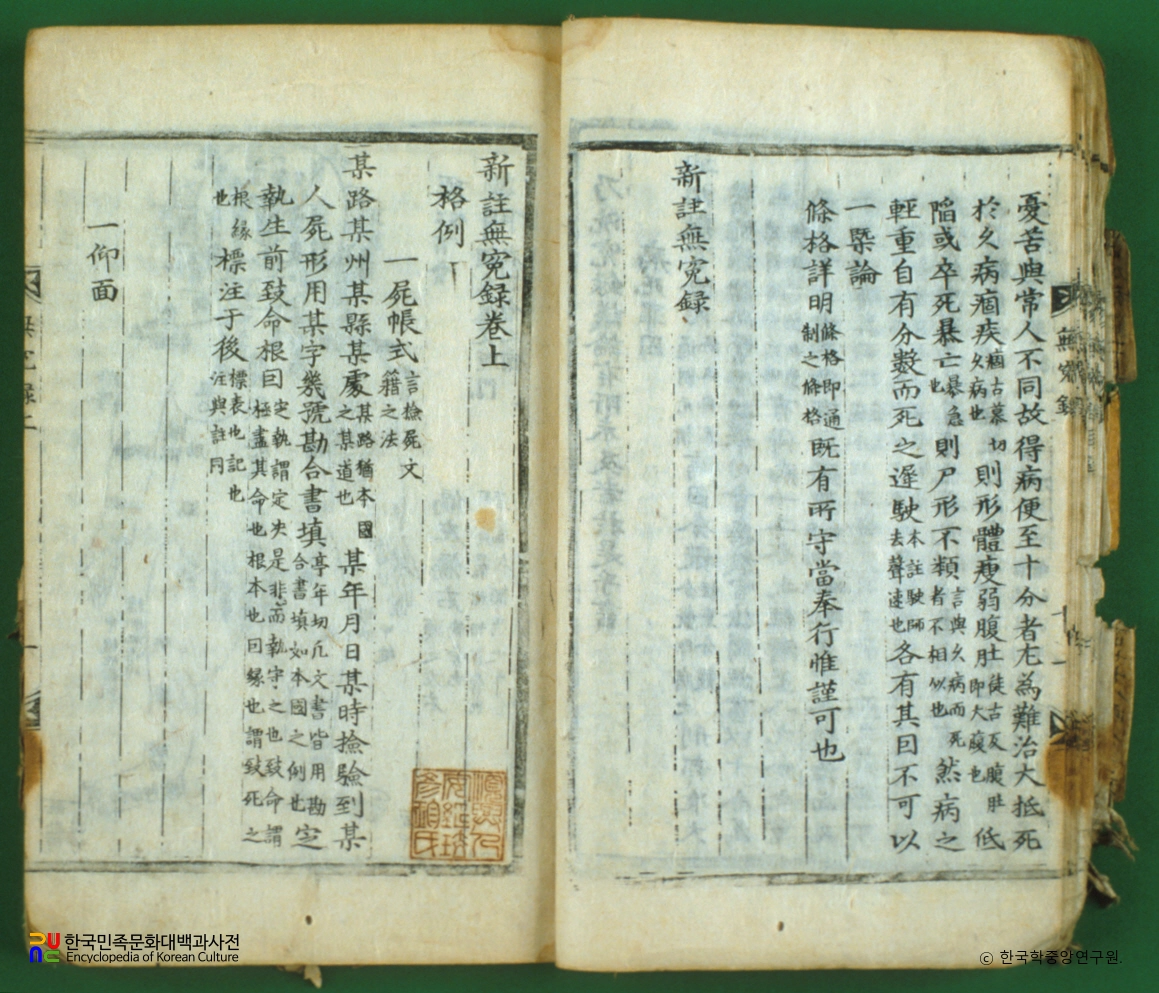 憂苦與常人不同故得病便至十分者尤爲難治大抵死
於久病痼疾痼古慕切久病也則形體瘦弱腹肚徒古反腹肚即大腹也低
陷或卒死暴亡暴急也則尸形不類言與久病而死者不相似也然病之
輕重自有分數而死之遲駛本註駛師去聲速也各有其因不可以
一槩論
條格詳明條格即通制之條格旣有所守當奉行惟謹可也
新註無寃錄
無寃錄
新註無寃錄卷上
格例
一屍帳式言檢屍文籍之法
某路某州某縣某處某路猶本國之某道也某年月日某時撿驗到某
人屍形用某字幾號勘合書填亭年切凡文書皆用勘合書填如本國之例也定
執生前致命根因定執謂定夬是非而執守之也致命謂極盡其命也根本也因緣也謂致死之
根緣也標注于後標表也記也注與註同
一仰面
한국민족문화대백과사전
Encyclopedia of Korean Culture
© 한국학중앙연구원.